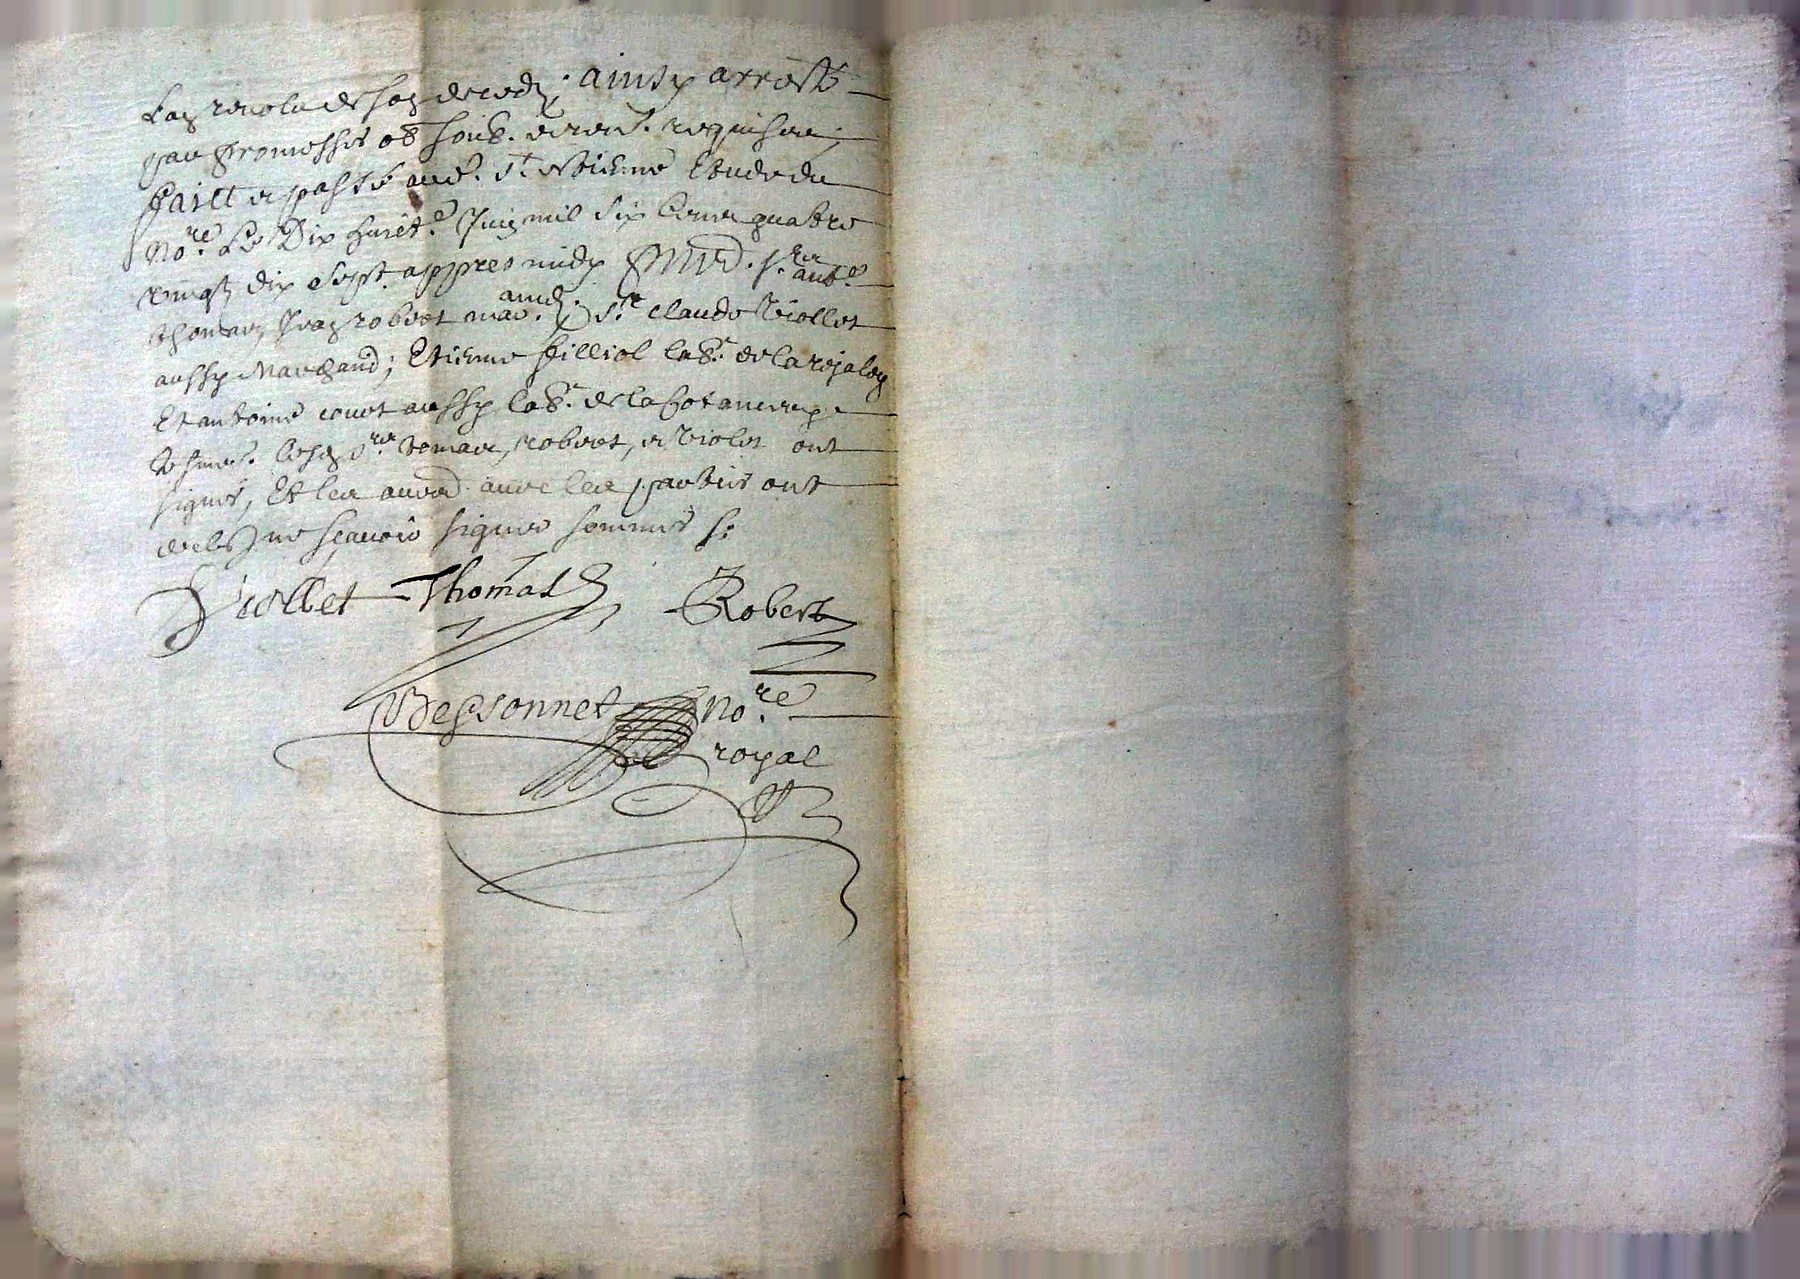 l'an revolu de son deceds; ainsy arresté
par promesses ob. soub. et renon. requises;
faict et passé aud. St Estienne Estude du
nore. Le Dix huict.e Juin mil six cents quatre
vingtz dix sept appres midy pnts Srs ant.e
thomas, Jean robert mar. aud. Sr claude Viollet
aussy Marchand; Etienne filliol lab.r de la
Et antoine court aussy lab.r de la
tesmoins. lesd. Srs tomas, robert, et violet ont
signé, Et les autres avec les parties ont
declé ne sçavoir signer sommés s:
Viollet Thomas Robert
Bessonnet Nore
royal